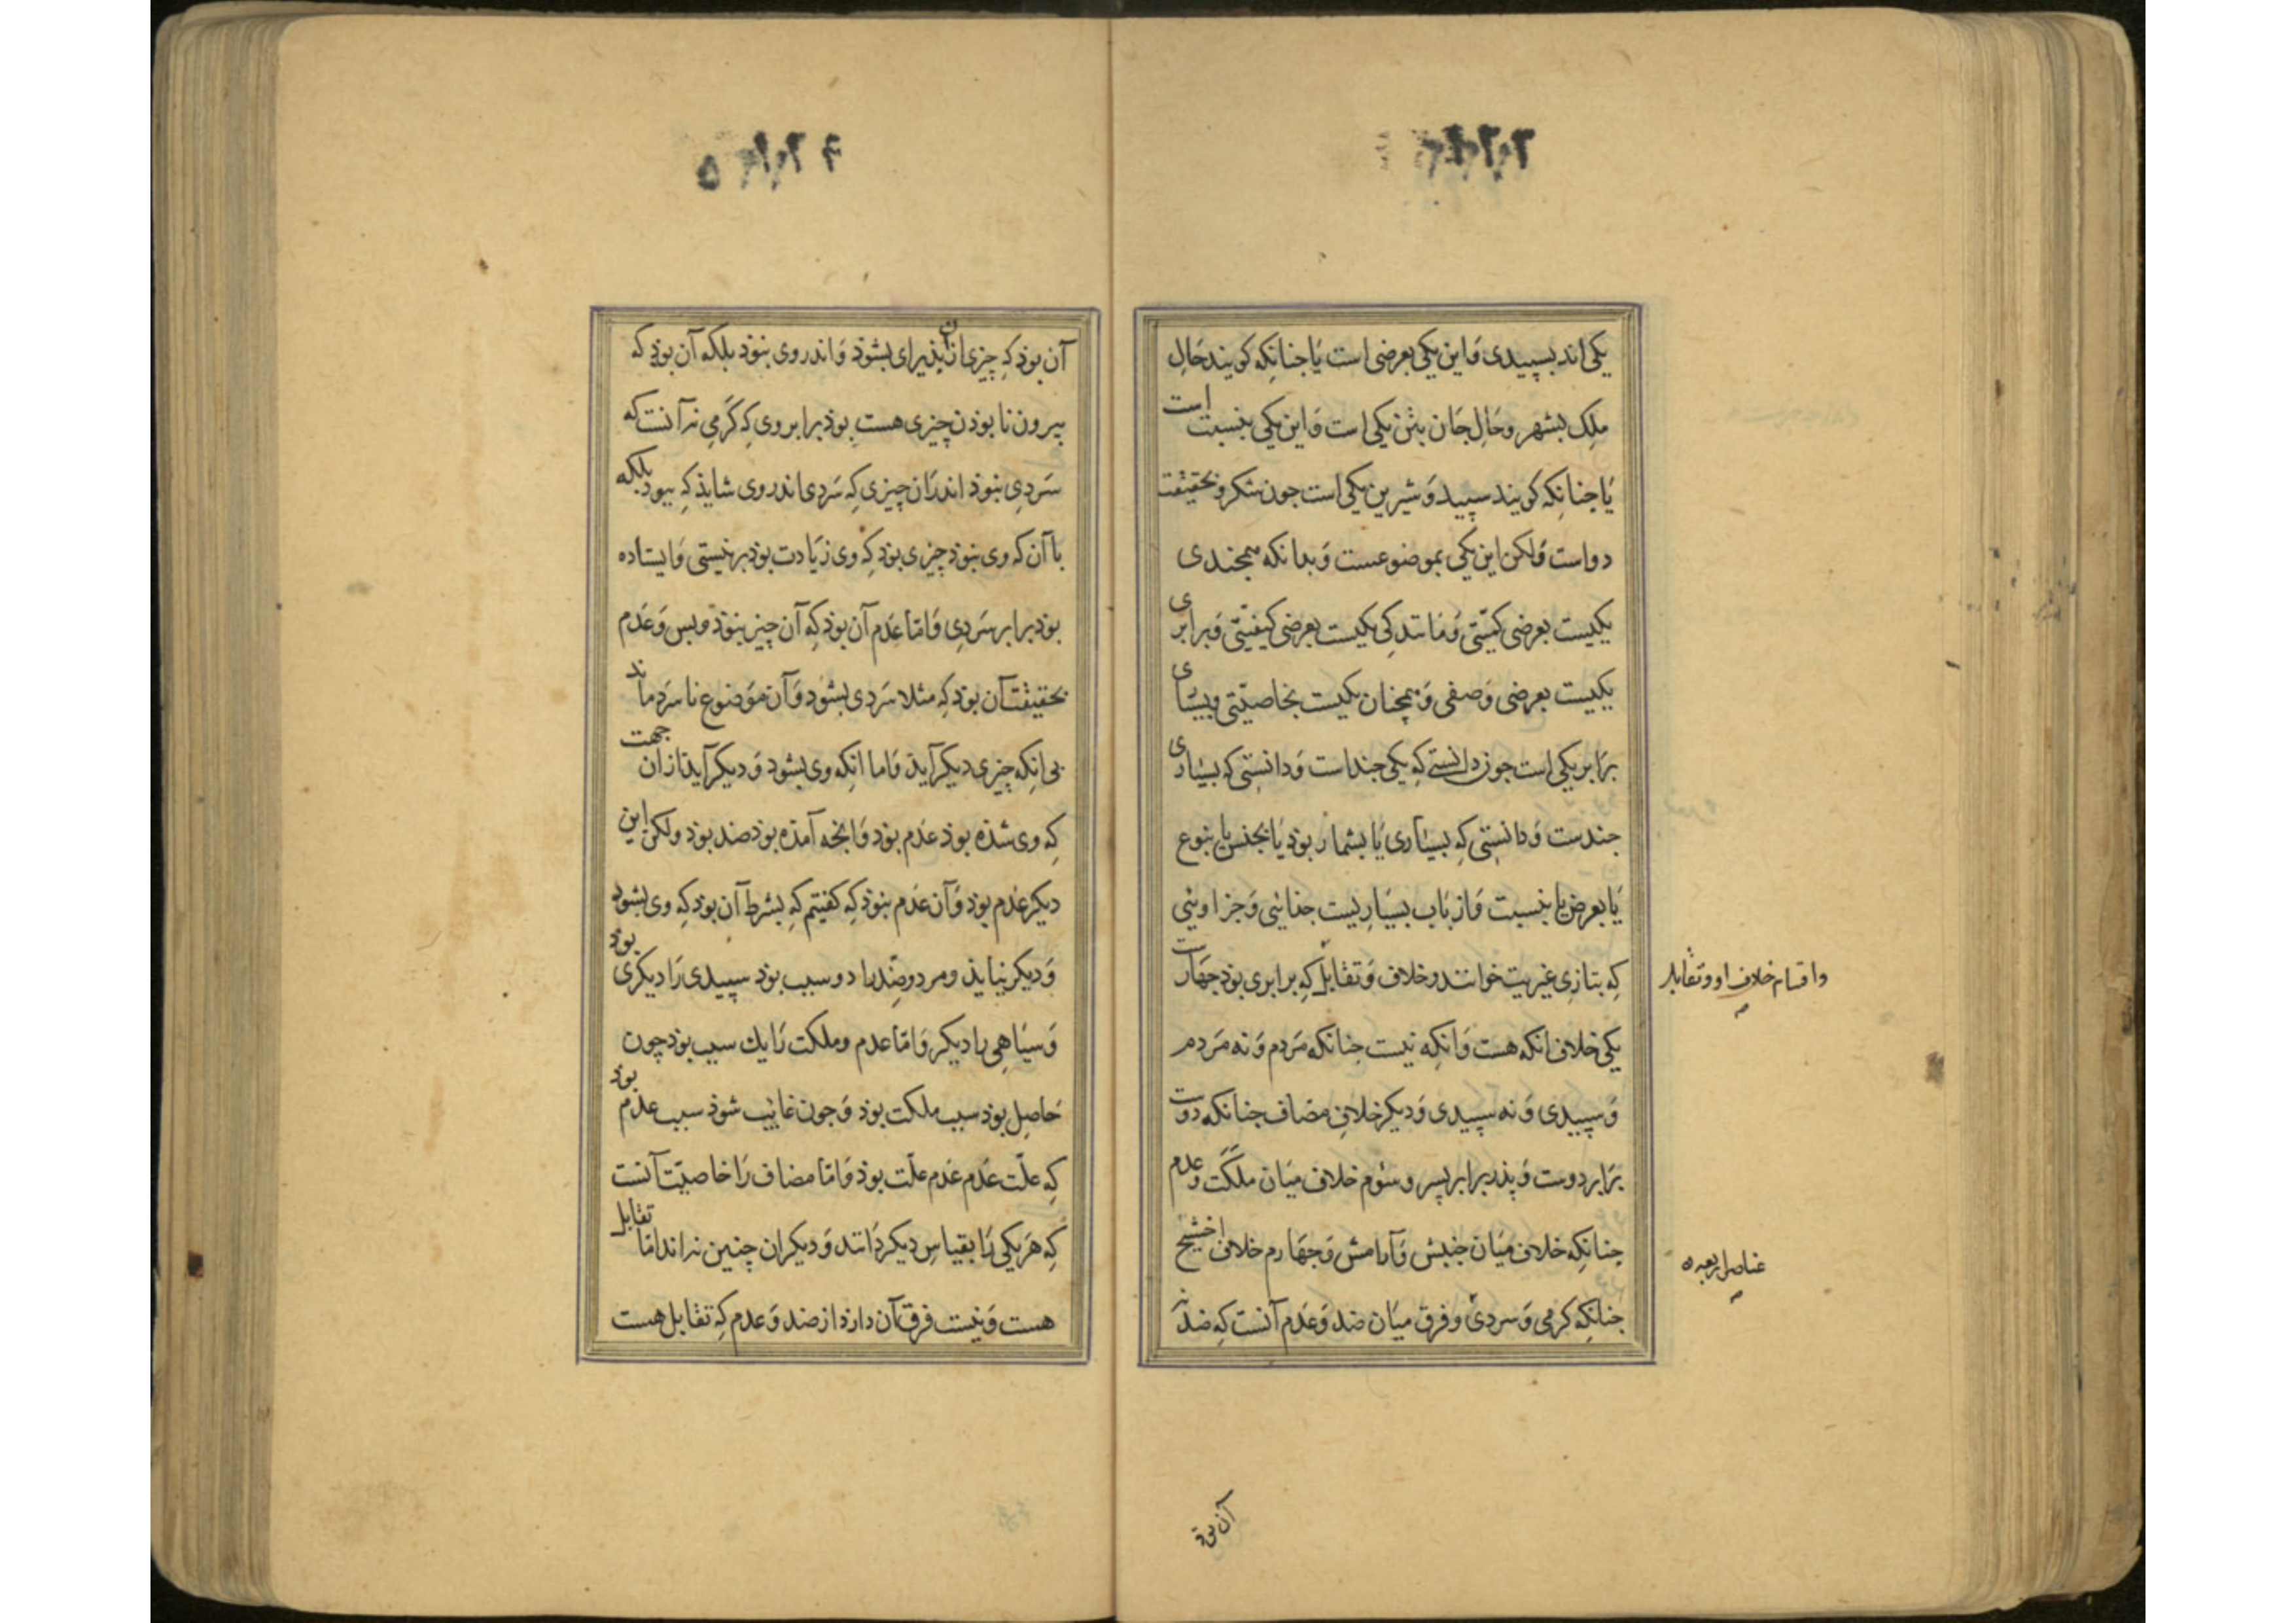 یکی اند بسپیدی وَاین یکی بعرضی است یَا جنانکه کویند حَالِ
ملِک بشهر وحَالِ جَان بتن یکی است وَاین یکی بنسبت است
یَا جنانکه کویند سپید وَ شیرین یکی است جون شکر وبحقیقت
دو است وَلکن این یکی بموضوعست وَبدانکه همجندی
یکیست بعرضی کمیّتی وَمانندکی یکیست بعرضی کیفیّتی وَبرابری
یکیست بعرضی وَصفی وَهمچنان یکیست بخاصیّتی وبسیاری
برَابر یکی است جون دانستے کِه یکی جند است وَدانستی که بسیاری
جندست وَدانستی کِه بسیاری یَا بشمار بوذ یَا بجنس یا بنوع
یَا بعرض یا بنسبت وَاز بَاب بسیَاریست جذائی وَجز اویئی
کِه بتازی غیریت خوانند وخلاف وَتقابل کِه برابری بوذ جهَارست
یکی خلاف انکه هست وَانکِه نیست جنانکه مَردم وَنه مَردم
وَسپیدی وَنه سپیدی وَدیکر خلافِ مضاف جنانکه دوست
برَابر دوست وَپذر برابر پسر وسوُم خلاف میَان ملکَت وعدم
جنانکِه خلاف میَان جنبش وَآرامش وَجهَارم خلاف اخشیج
جنانکِه کرمی وَسردی وفرق میَان ضد وَعَدم آنست کِه ضد نه
واقسام خلاف او وتقابل
عناصر اربعه
آن بوذ
آن بوذ کِه چیزی ازان پذیرای بشوذ وَاندر وی نبوذ بلکه آن بوذ که
بیرون نابوذن چیزی هست بوذ برابر وی کِه کَرمی نه آنست که
سَردی نبوذ اندرَان چیزی کِه سَردی اندر وی شایذ کِه بود بلکه
باآن که وی نبوذ چیزی بوذ کِه وی زیَادت بوذ برنیستی وَایستاده
بوذ برابر سَردِی وَامّا عَدم آن بوذ کِه آن چیز نبوذ وبس وَعَدم
بحقیقت آن بوذ کِه مثلا سَردی بشوذ وَآن مَوضوع ناسَرد ماند
بی انکِه چیزی دیکر آید وَاما انکِه وی بشود وَدیکر آیذ ازان جهت
کِه وی شذه بوذ عَدم بوذ وَانجه آمذه بوذ ضد بوذ ولکن این
دیکر عَدم بوذ وَآن عَدم نبوذ کِه کفتیم کِه بشرط آن بوذ کِه وی بشوذ
وَدیکر نیایذ ومر دو ضِد را دو سبب بوذ سپیدی رَا دیکری بوذ
وَسیَاهی را دیکر وَامّا عدم وملکت رَا یك سبب بوذ چون
حَاصِل بوذ سبب ملکت بوذ وَجون غایب شوذ سبب عدم بوذ
کِه علّت عَدم عَدم علّت بوذ وَامّا مضاف رَا خاصیّت آنست
کِه هَر یکی رَا بقیاسِ دیکر دَانند وَدیکران چنین نه اند امّا تقابل
هست وَنیست فرق آن دارد از ضد وَعدم کِه تقابل هست